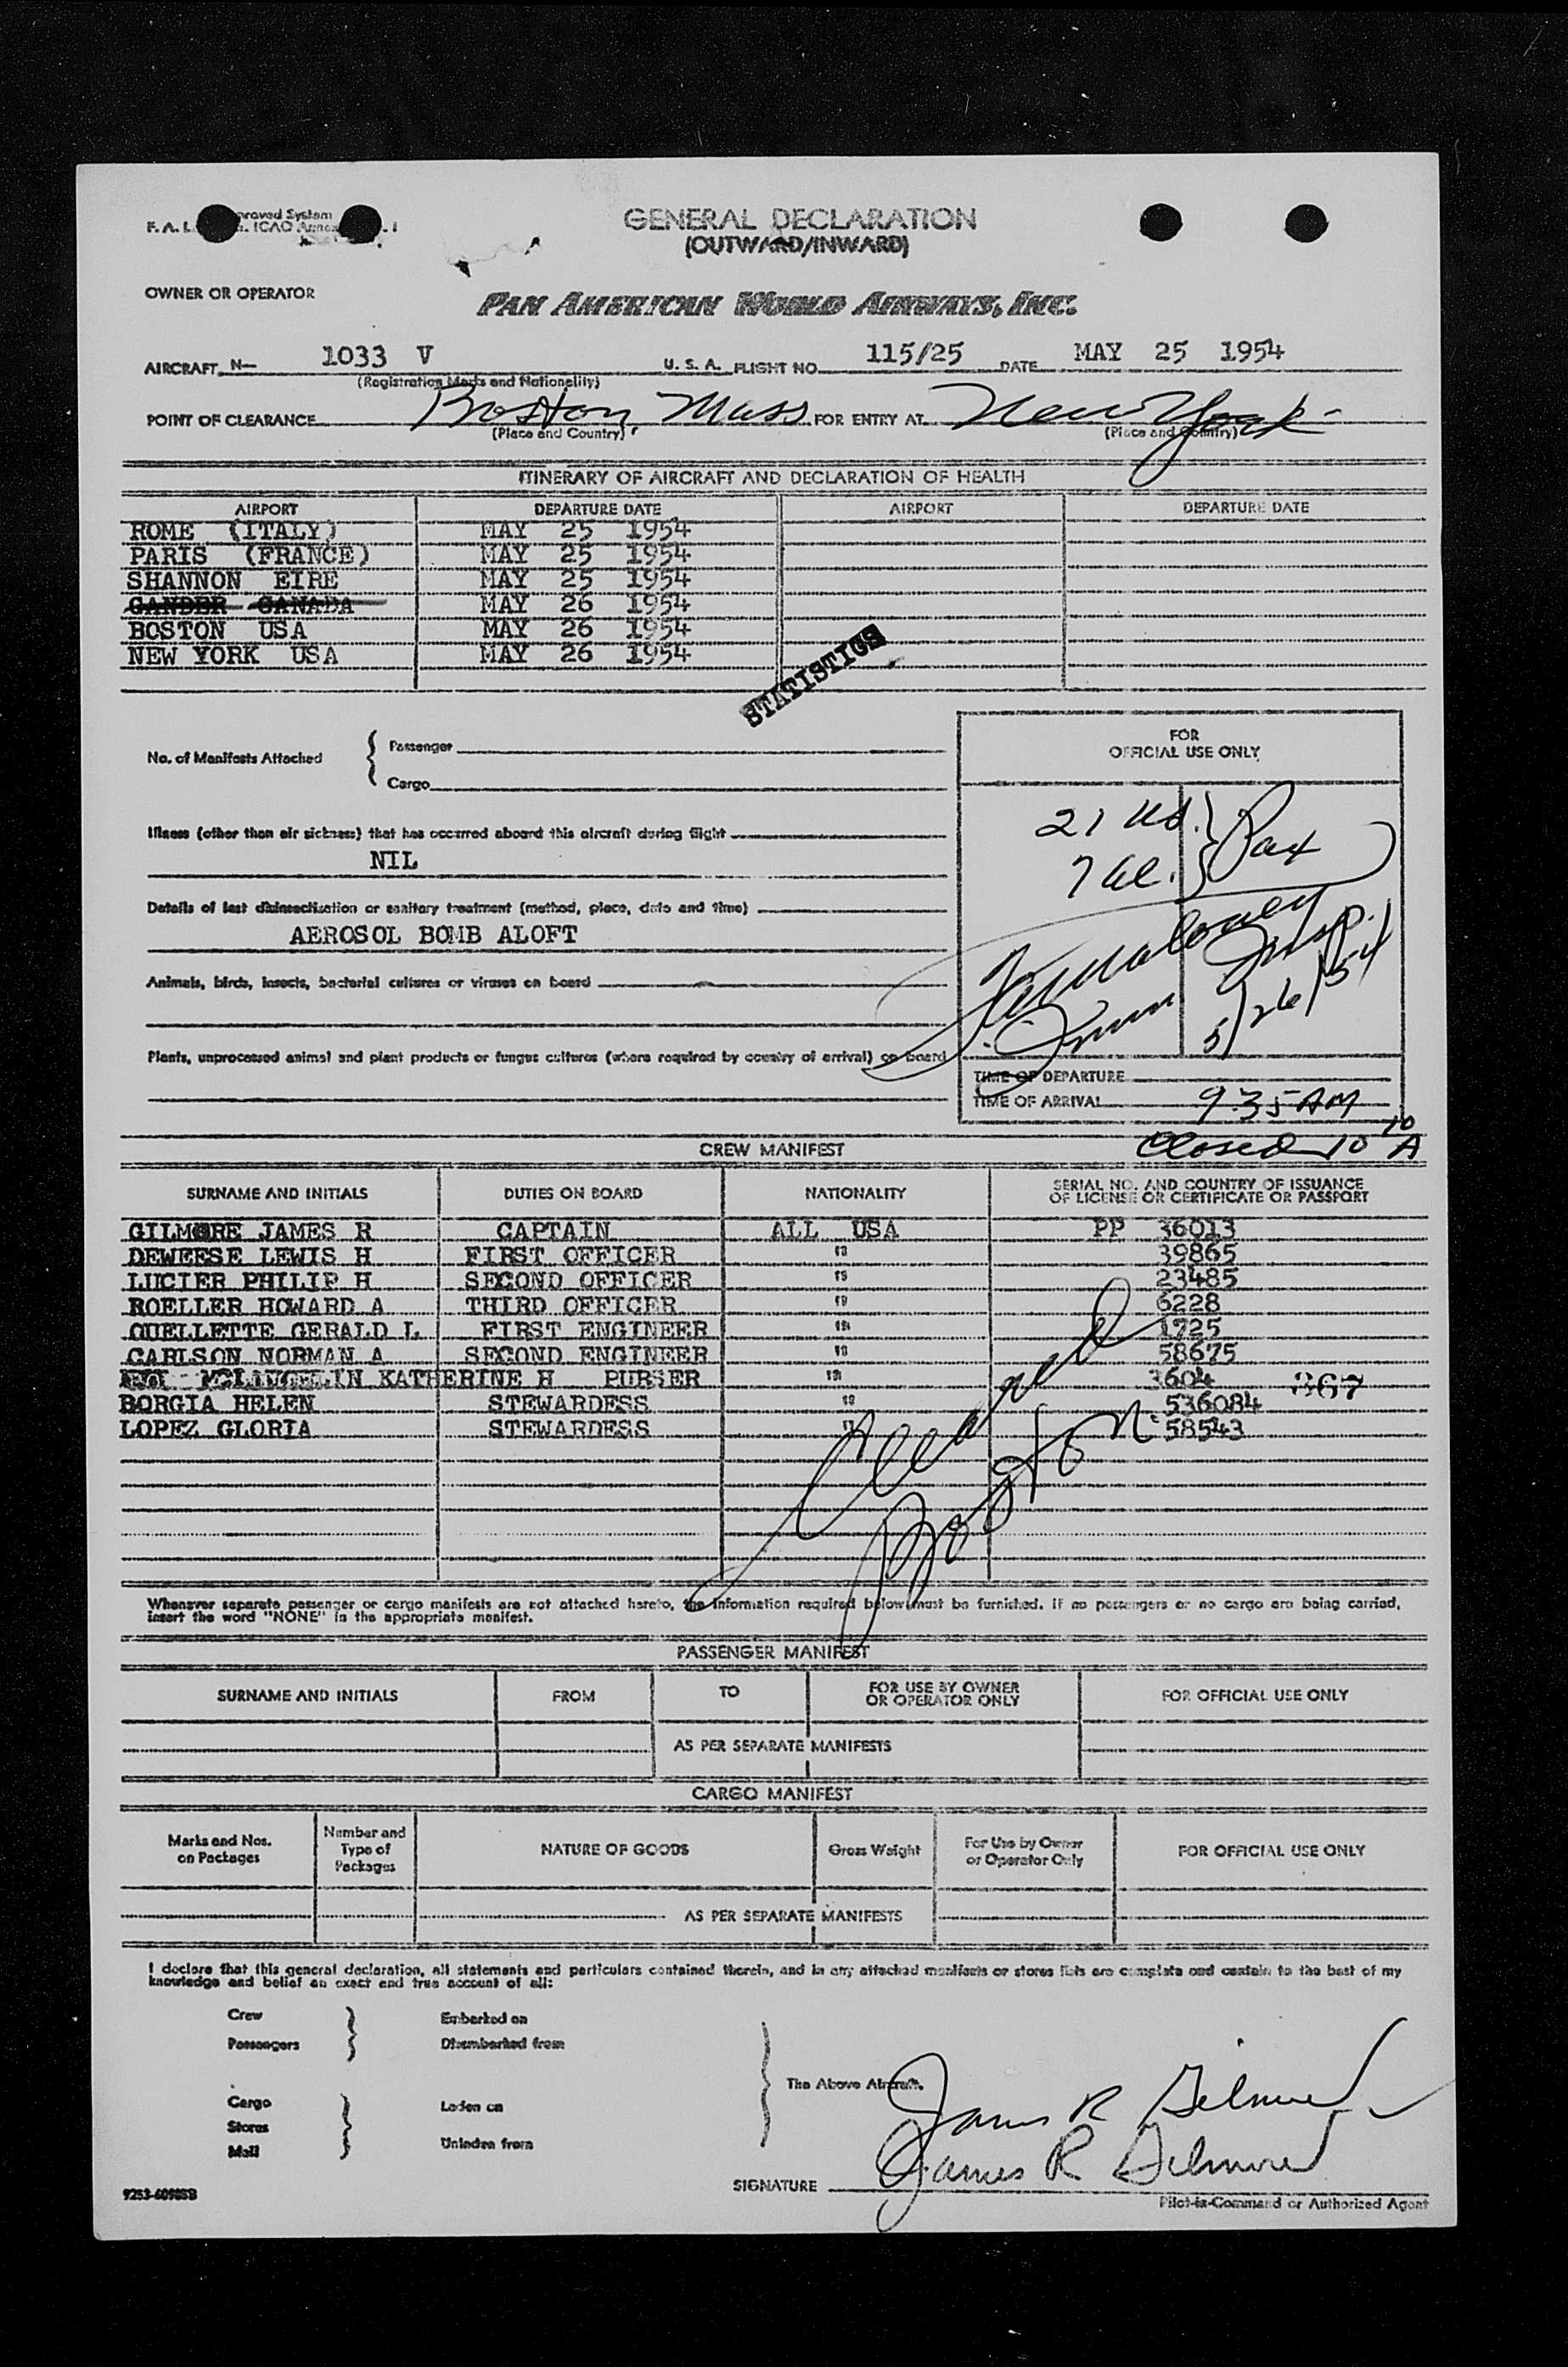 F. A. L. proved System
ICAO Annex
GENERAL DECLARATION
(OUTWARD/INWARD)
OWNER OR OPERATOR
PAN AMERICAN WORLD AIRWAYS, INC.
AIRCRAFT N— 1033 V U. S. A. FLIGHT NO. 115/25 DATE MAY 25 1954
(Registration Marks and Nationality)
POINT OF CLEARANCE Boston, Mass FOR ENTRY AT New York
(Place and Country) (Place and Country)
ITINERARY OF AIRCRAFT AND DECLARATION OF HEALTH
AIRPORT DEPARTURE DATE AIRPORT DEPARTURE DATE
ROME (ITALY) MAY 25 1954
PARIS (FRANCE) MAY 25 1954
SHANNON EIRE MAY 25 1954
GANDER CANADA MAY 26 1954
BOSTON USA MAY 26 1954
NEW YORK USA MAY 26 1954
STATISTICS
FOR
OFFICIAL USE ONLY
No. of Manifests Attached { Passenger
Cargo
21 US. } Pax
7 al.
Illness (other than air sickness) that has occurred aboard this aircraft during flight
NIL
Details of last disinsectization or sanitary treatment (method, place, date and time)
AEROSOL BOMB ALOFT
Insp.
Imm 5/26/54
Animals, birds, insects, bacterial cultures or viruses on board
Plants, unprocessed animal and plant products or fungus cultures (where required by country of arrival) on board
TIME OF DEPARTURE
TIME OF ARRIVAL 9:35 AM
Closed 10 10 A
CREW MANIFEST
SURNAME AND INITIALS DUTIES ON BOARD NATIONALITY SERIAL NO. AND COUNTRY OF ISSUANCE
OF LICENSE OR CERTIFICATE OR PASSPORT
GILMORE JAMES R CAPTAIN ALL USA PP 36013
DEWEESE LEWIS H FIRST OFFICER " 39865
LUCIER PHILIP H SECOND OFFICER " 23485
ROELLER HOWARD A THIRD OFFICER " 6228
OUELLETTE GERALD L FIRST ENGINEER " 1725
CARLSON NORMAN A SECOND ENGINEER " 58675
MCLINGHLIN KATHERINE H PURSER " 3604 367
BORGIA HELEN STEWARDESS " 536084
LOPEZ GLORIA STEWARDESS " 58543
Cleared
Boston
Whenever separate passenger or cargo manifests are not attached hereto, the information required below must be furnished. If no passengers or no cargo are being carried,
insert the word "NONE" in the appropriate manifest.
PASSENGER MANIFEST
SURNAME AND INITIALS FROM TO FOR USE BY OWNER
OR OPERATOR ONLY FOR OFFICIAL USE ONLY
AS PER SEPARATE MANIFESTS
CARGO MANIFEST
Marks and Nos.
on Packages Number and
Type of
Packages NATURE OF GOODS Gross Weight For Use by Owner
or Operator Only FOR OFFICIAL USE ONLY
AS PER SEPARATE MANIFESTS
I declare that this general declaration, all statements and particulars contained therein, and in any attached manifests or stores lists are complete and contain to the best of my
knowledge and belief an exact and true account of all:
Crew Embarked on
Passengers Disembarked from
The Above Aircraft.
Cargo Laden on
Stores
Mail Unladen from
James R Gilmore
James R Gilmore
SIGNATURE
Pilot-in-Command or Authorized Agent